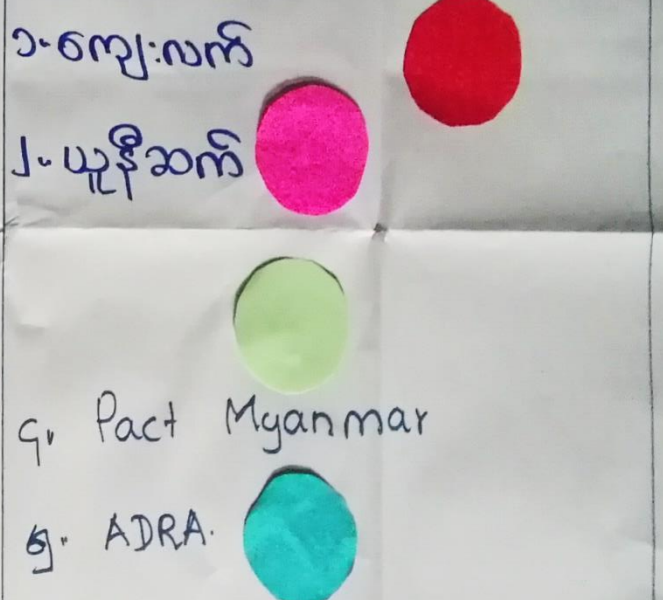 ၁။ ကျေးလက်
၂။ ယူနီဆက်
၄။ Pact Myanmar
၅။ ADRA.